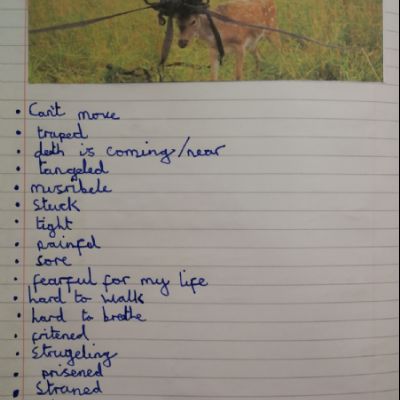 • Can't move
• traped
• deth is coming/near
• tangeled
• musribele
• Stuck
• tight
• painful
• sore
• fearful for my life
• hard to walk
• hard to brethe
• fritened
• Strugeling
• prisened
• Straned